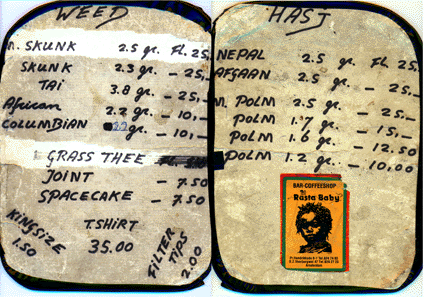 WEED
N. SKUNK 2.5 gr. Fl. 25,-
SKUNK 2.3 gr. - 25,-
TAI 3.8 gr. - 25,-
African 2.2 gr. - 10,-
COLUMBIAN 2.2 gr. - 10,-
GRASS THEE
JOINT - 7.50
SPACECAKE - 7.50
T.SHIRT
35.00
KINGSIZE
1.50
FILTER
TIPS
2.00
HASJ
NEPAL 2.5 gr. FL 25,-
AFGAAN 2.5 gr. - 25,-
M. POLM 2.5 gr. - 25,-
POLM 1.7 gr. - 15,-
POLM 1.6 gr. - 12.50
POLM 1.2 gr. - 10,00
BAR-COFFEESHOP
Rasta Baby